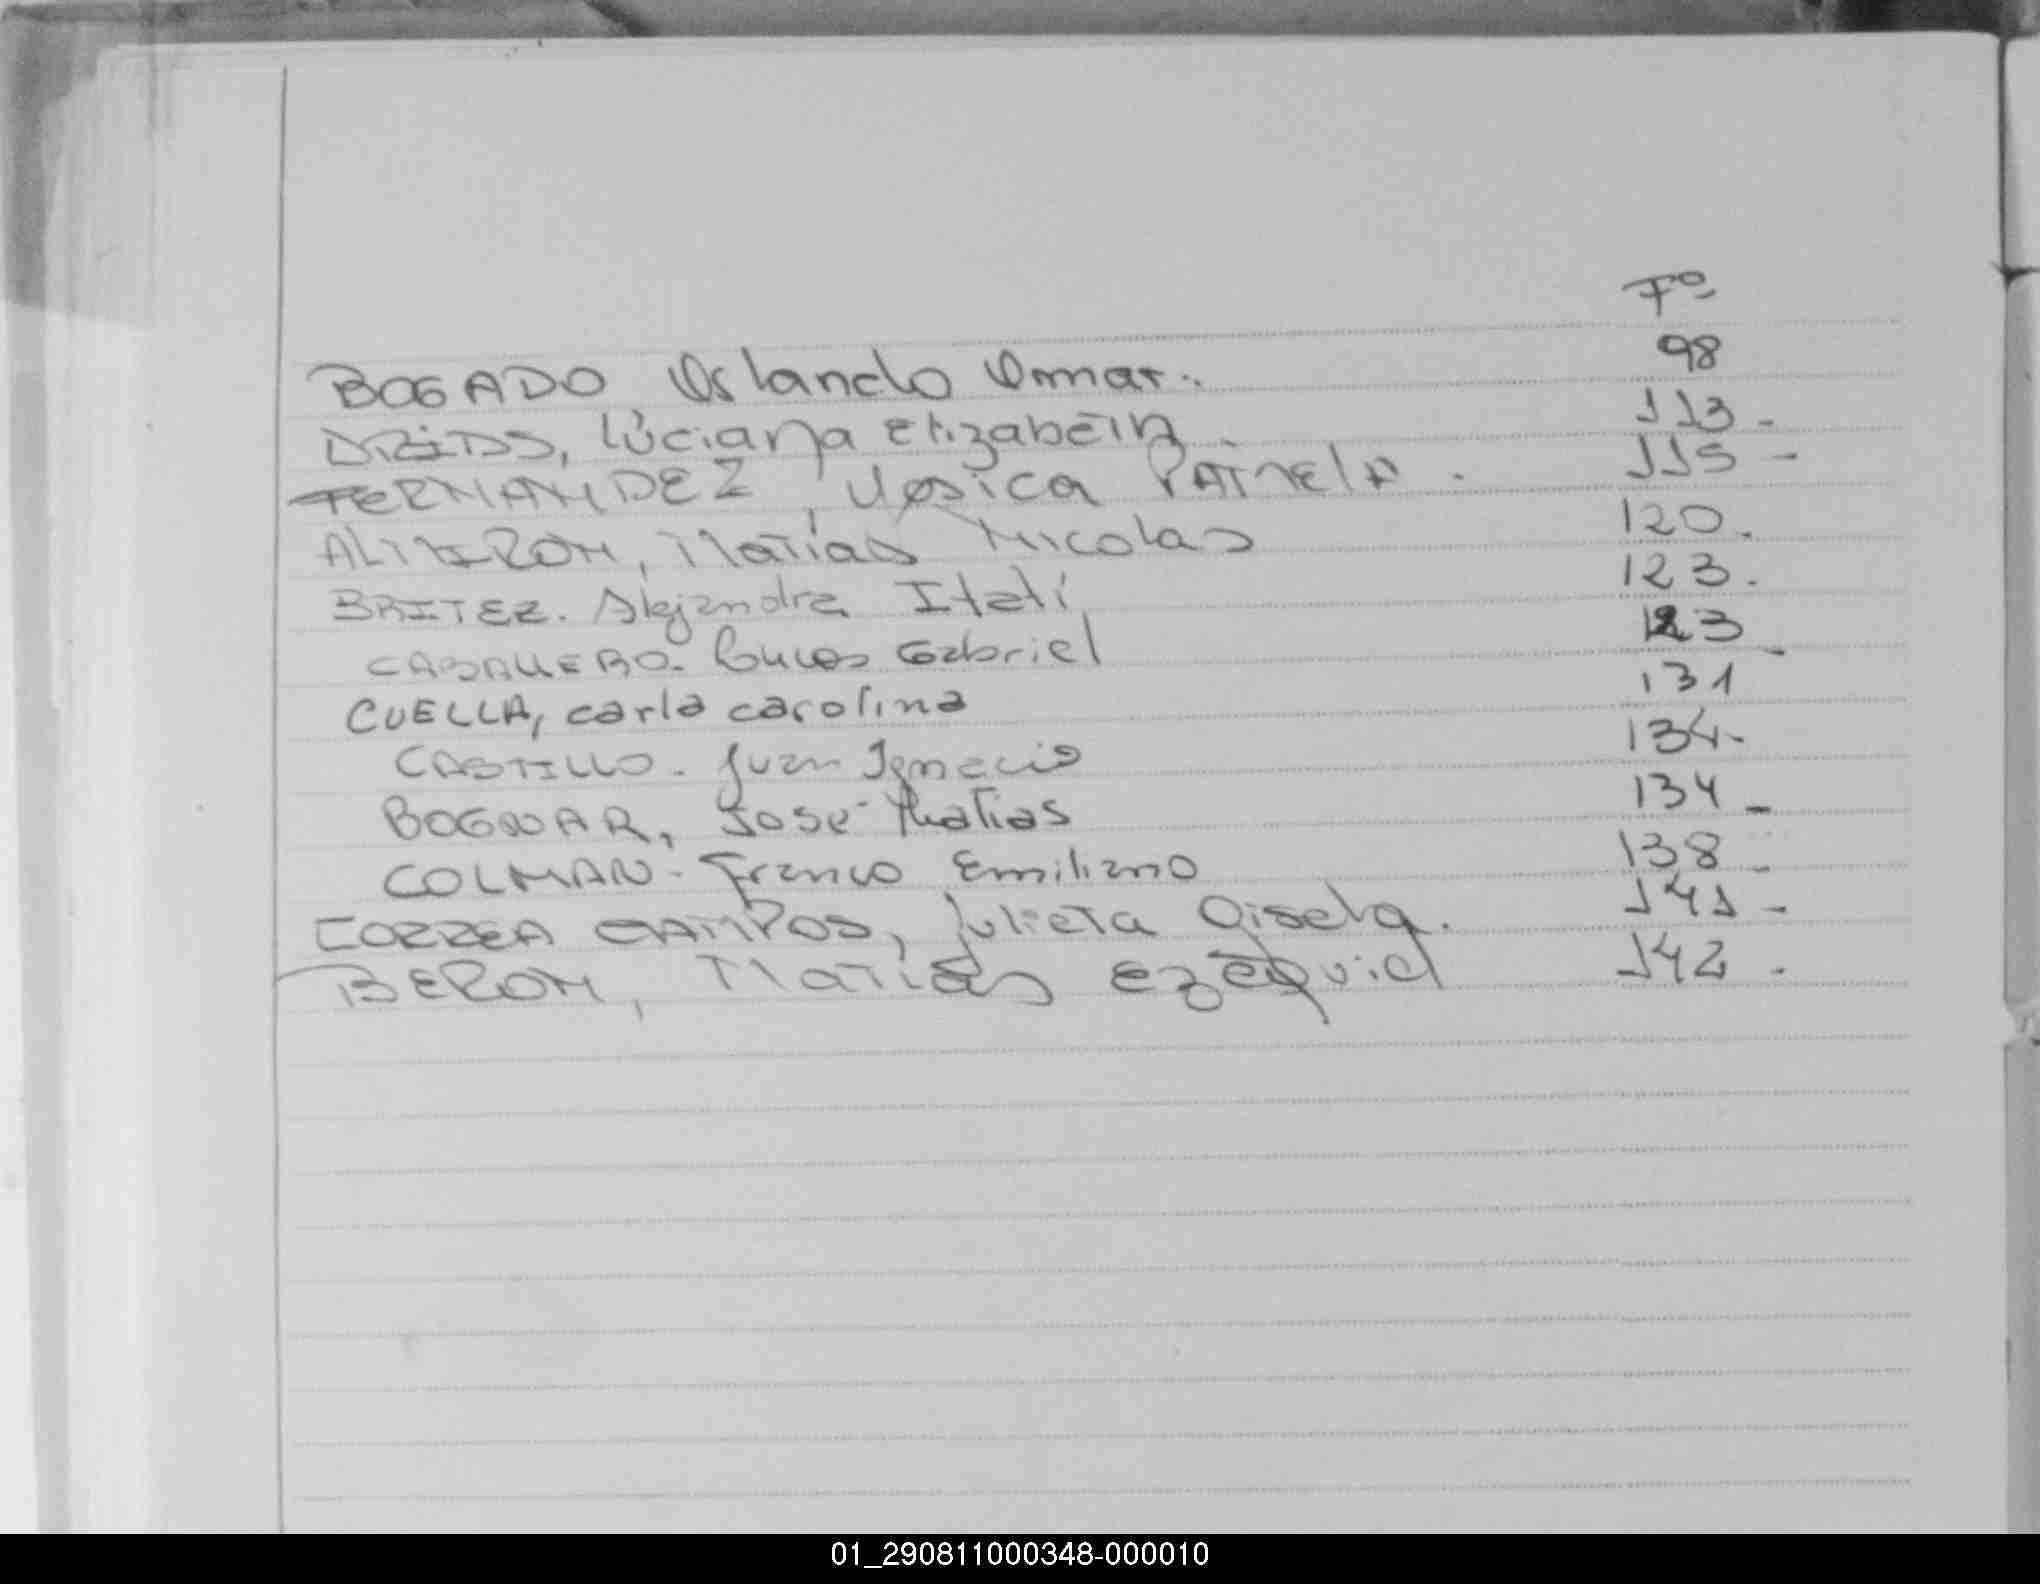 Fº
BOGADO Orlando Omar. 98
Luciana Elizabeth. 113-
FERNANDEZ, Yesica PAMELA. 115-
ALMIRON, Matías Nicolas 120.
BRITEZ. Alejandra Itatí 123.
CABALLERO- Lucas Gabriel 123-
CUELLA, carla carolina 131
CASTILLO- Juan Ignacio 134-
BOGNAR, José Matias 134-
COLMAN- Franco Emiliano 138-
CORREA CAMPOS, Julieta Gisela. 141-
BERON, Matías Ezequiel 142-
01_290811000348-000010